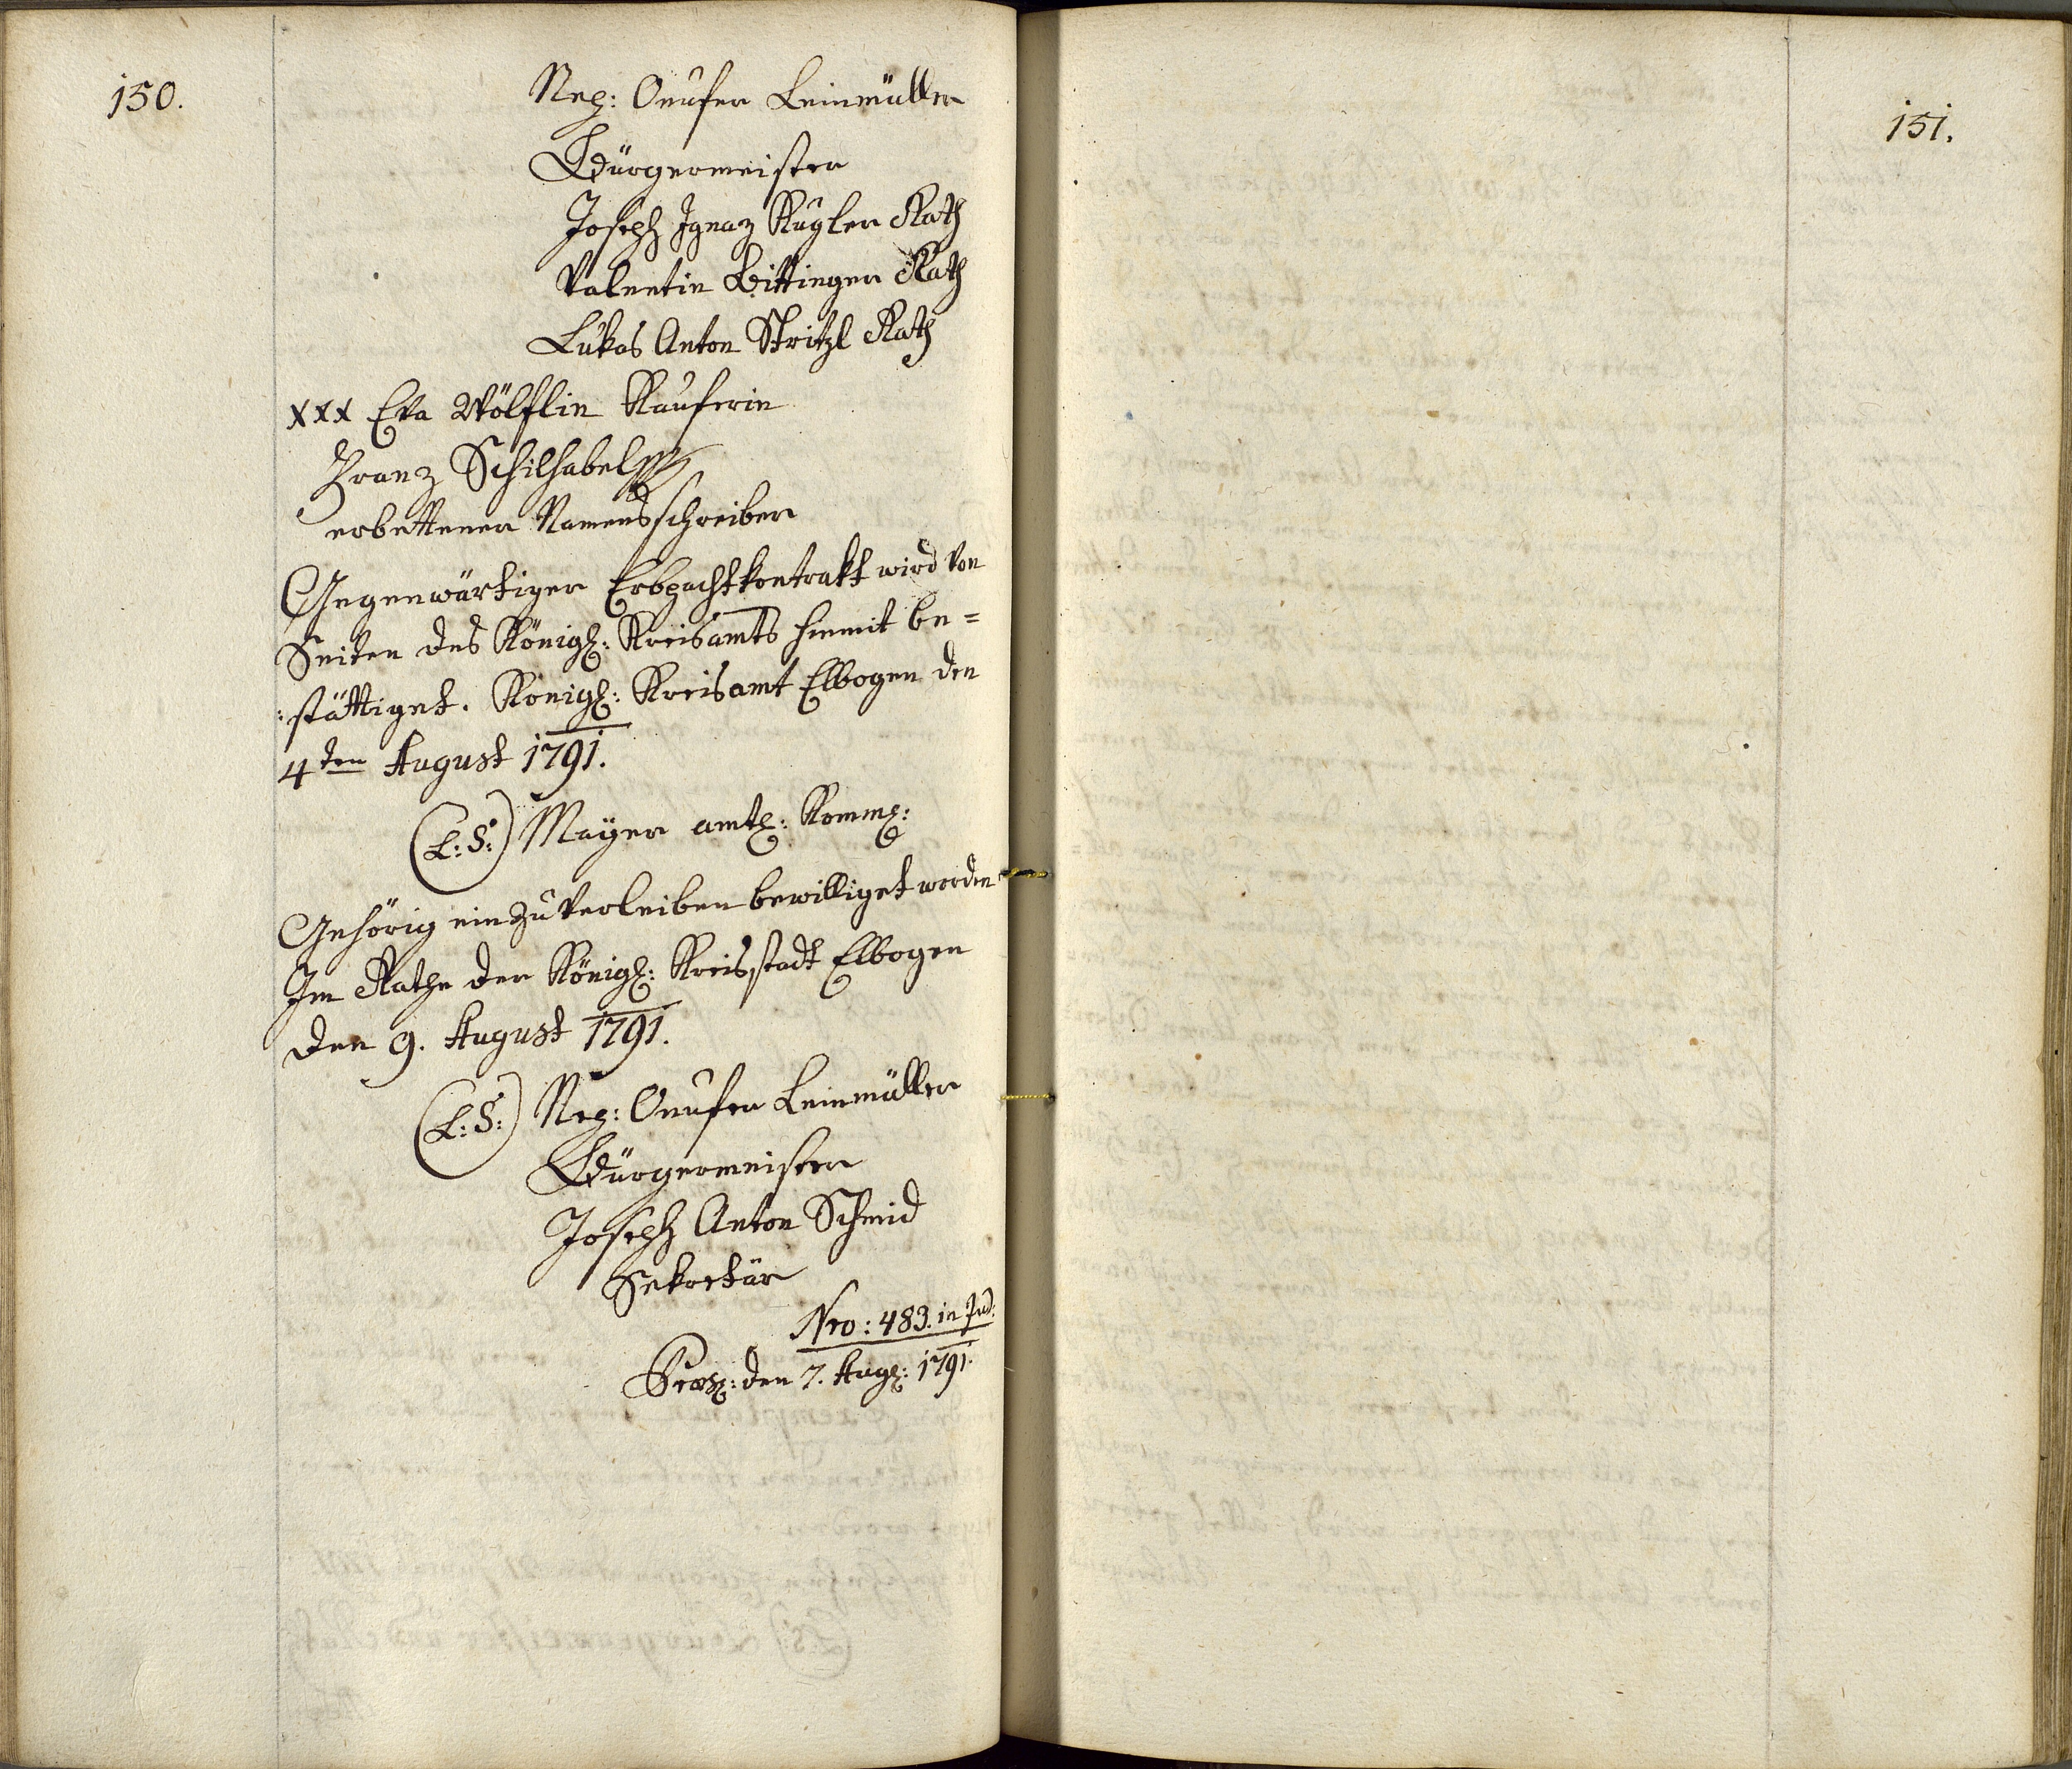 150.
Nep: Onufer Leinmüller
Bürgermeister
Joseph Ignaz Kugler Rath
Valentin Bittinger Rath
Lukas Anton Stritzl Rath
xxx Eva Wölflin Kauferin
Franz Schilhabel
erbettener Namensschreiber
Gegenwärtiger Erbpachtkontrakt wird von
Seiten des Königl: Kreisamts hiemit be=
:stättiget. Königl: Kreisamt Elbogen den
4ten August 1791.
(L:S:) Mayer amtl: Komml:
Gehörig einzuverleiben bewilliget worden
Im Rathe der Königl: Kreisstadt Elbogen
den 9. August 1791.
(L:S:) Nep: Onufer Leinmüller
Bürgermeister
Joseph Anton Schmid
Sekretär
Nro: 483. in Jud:
Præs: den 7. Aug: 1791.
151.